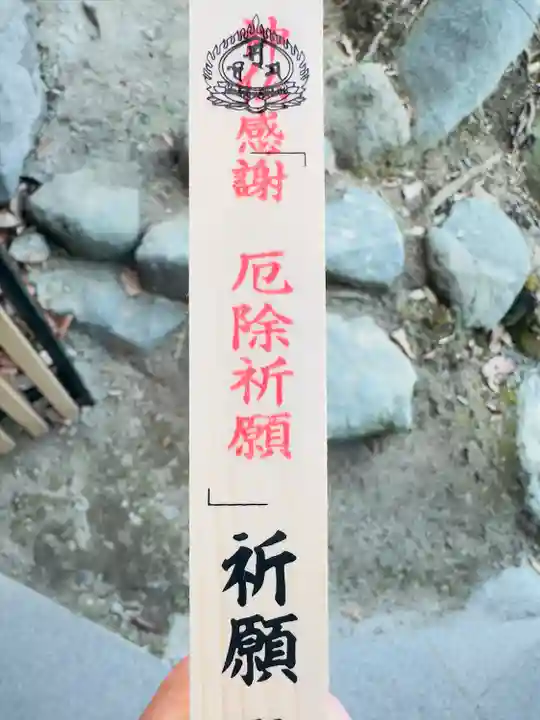 神仏感謝 厄除祈願
「
」
祈願